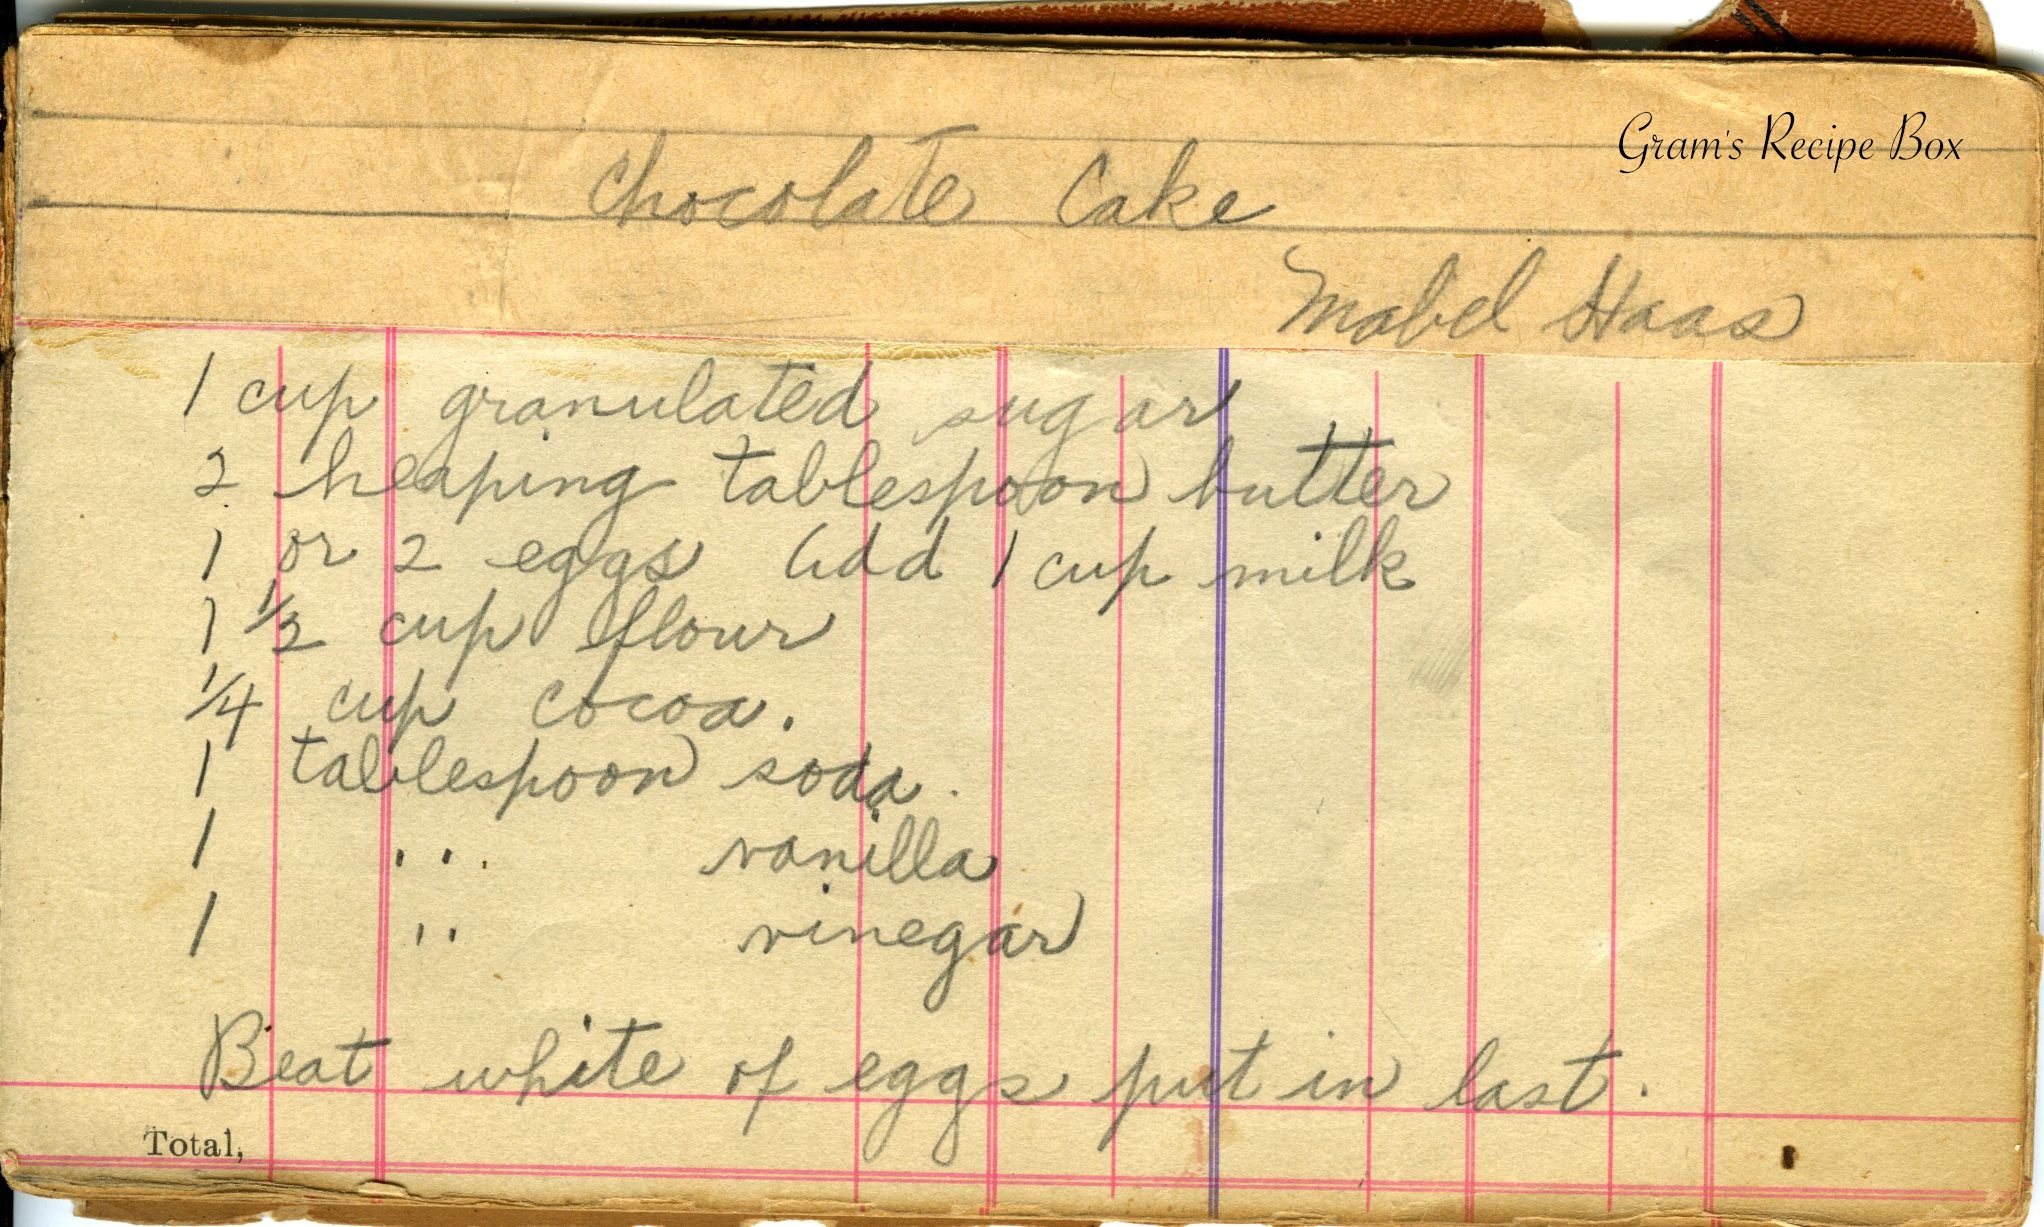 Gram's Recipe Box
Chocolate Cake
Mabel Haas
1 cup granulated sugar
2 heaping tablespoon butter
1 or 2 eggs Add 1 cup milk
1 1/2 cup flour
1/4 cup cocoa.
1 tablespoon soda.
1 " vanilla
1 " vinegar
Beat white of eggs put in last.
Total,